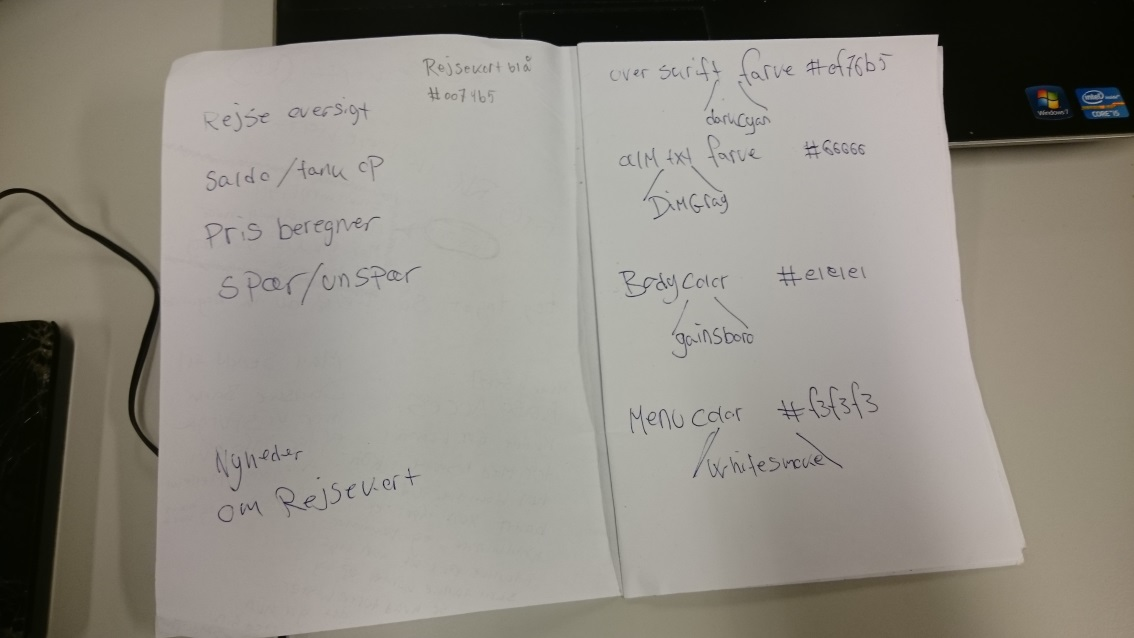 Rejsekort blå
#0074b5
Rejse oversigt
Saldo/tank op
Pris beregner
Spær/unspær
Nyheder
om Rejsekort
over skrift farve #cf76b5
darkcyan
alM txt farve #66666
DiMGray
Bodycolor #e1e1e1
gainsboro
Menu color #f3f3f3
Whitesmoke
Windows 7
intel
CORE i5